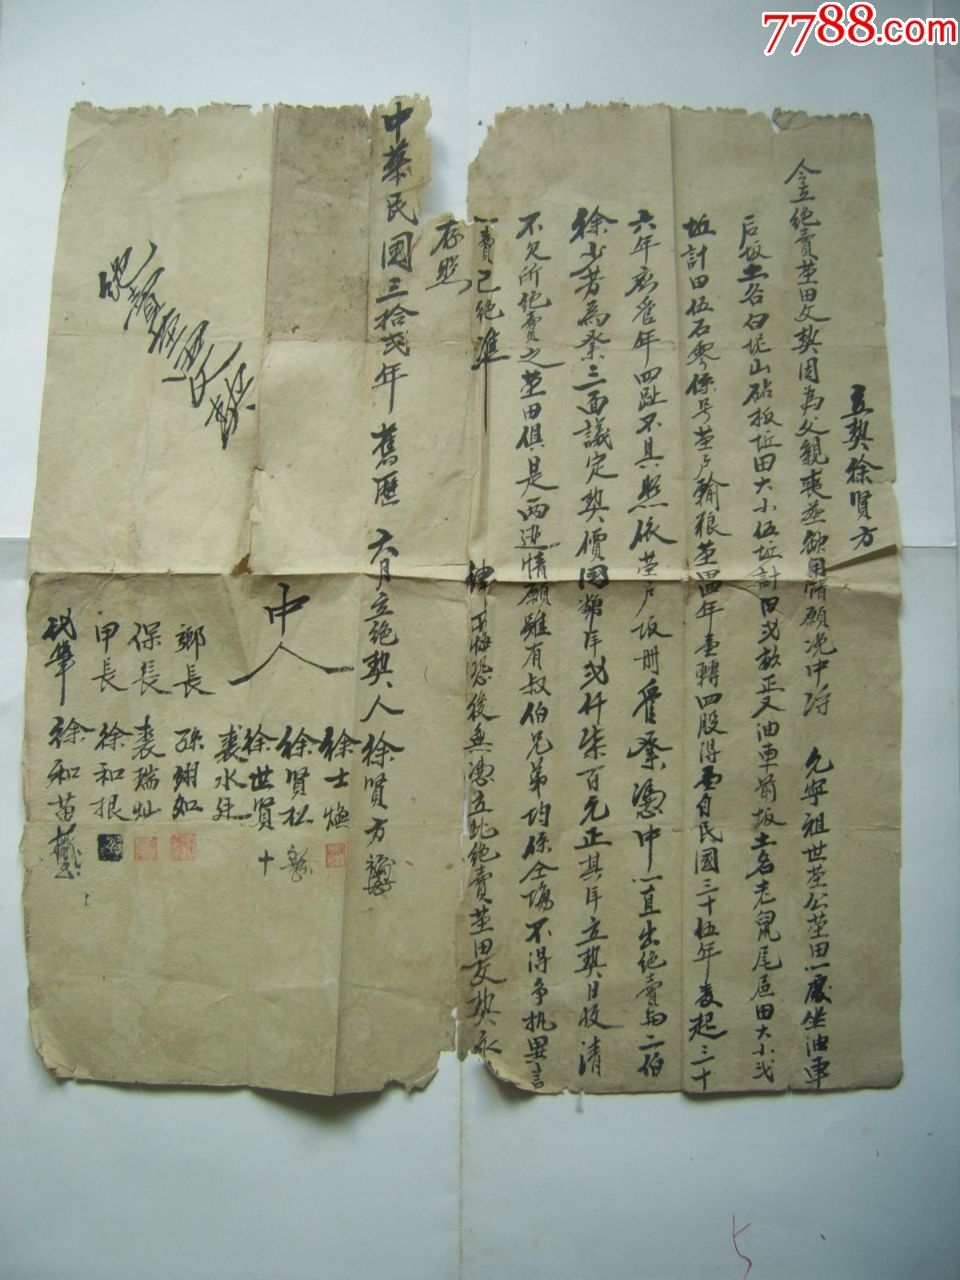 7788.com
立契徐贤方
仝立絶賣茔田文契因為父親喪塟缺用情願浼中将 允寧祖世茔公茔田一處坐油車
后坂土名白坭山砧板坵田大小伍坵計田弍畝正又油車前坂土名老鼠尾邑田大小弍
坵計田伍石零係号茔户輸粮茔四年壹轉四股得壹自民國三十伍年麦起三十
六年 年四趾不具照依茔户坂册 憑中一直出絶賣與二伯
徐少芳為 三面議定契價國 弍仟柒百元正其 立契日收清
不欠所絶賣之茔田俱是两边情願雖有叔伯兄弟均係仝塲不得争执異言
一賣已絶準 恐後無憑立此絶賣茔田文契永
存照
中華民國三拾弍年 舊歷 六月立絶契人徐贤方
中人
徐士焕
徐贤松
徐世贤 十
裘水廷
鄉長 孫翊如
保長 裘瑞灿
甲長 徐和根
代筆 徐和苗
絶賣茔田文契
5